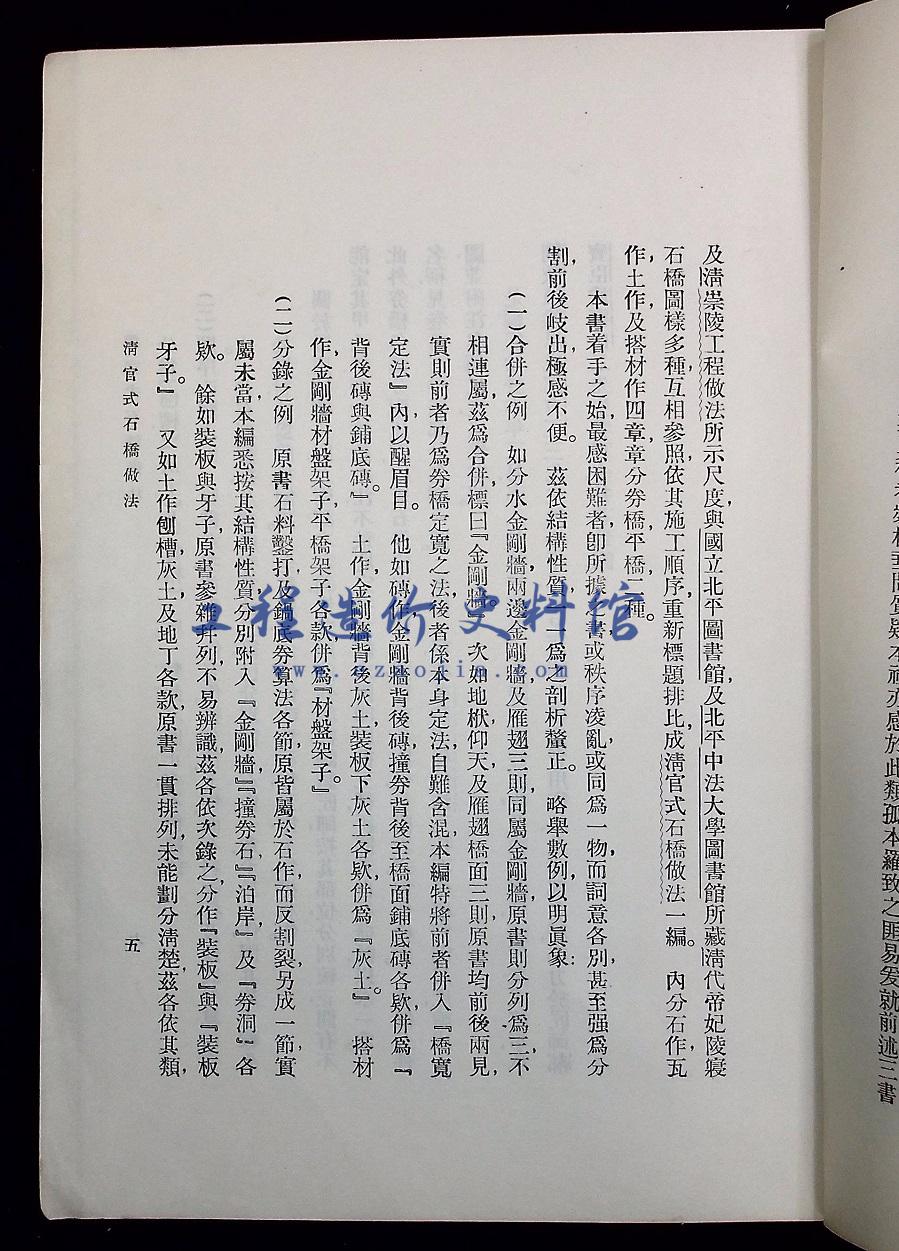 及清崇陵工程做法所示尺度,與國立北平圖書館及北平中法大學圖書館所藏清代帝妃陵寢
石橋圖樣多種,互相參照,依其施工順序,重新標題排比,成清官式石橋做法一編。 內分石作,瓦
作,土作,及搭材作四章,章分券橋平橋二種。
本書着手之始,最感困難者,卽所據之書或秩序凌亂,或同爲一物而詞意各別,甚至强爲分
割,前後岐出,極感不便。 茲依結構性質,一一爲之剖析釐正。 略舉數例,以明眞象:
(一)合併之例 如分水金剛牆,兩邊金剛牆,及雁翅三則,同屬金剛牆,原書則分列爲三,不
相連屬,茲爲合併,標曰『金剛牆。』 次如地栿仰天及雁翅橋面三則,原書均前後兩見,
實則前者乃爲券橋定寬之法,後者係本身定法,自難含混,本編特將前者併入『橋寬
定法』內,以醒眉目。 他如磚作金剛牆背後磚,撞券背後至橋面鋪底磚各欵,併爲『
背後磚與鋪底磚。』 土作金剛牆背後灰土,裝板下灰土各欵,併爲『灰土』。 搭材
作,金剛牆材盤架子,平橋架子各款,併爲『材盤架子。』
(二)分錄之例 原書石料鑿打及鍋底券算法各節,原皆屬於石作,而反割裂另成一節,實
屬未當,本編悉按其結構性質,分別附入『金剛牆』『撞券石』『泊岸』及『券洞』各
欵。 餘如裝板與牙子,原書參雜幷列,不易辨識,茲各依次錄之,分作『裝板』與『裝板
牙子』。 又如土作刨槽灰土及地丁各款,原書一貫排列,未能劃分淸楚,茲各依其類,
淸官式石橋做法
五
工程造价史料馆
感於此類孤本羅致之匪易,爰就前述三書